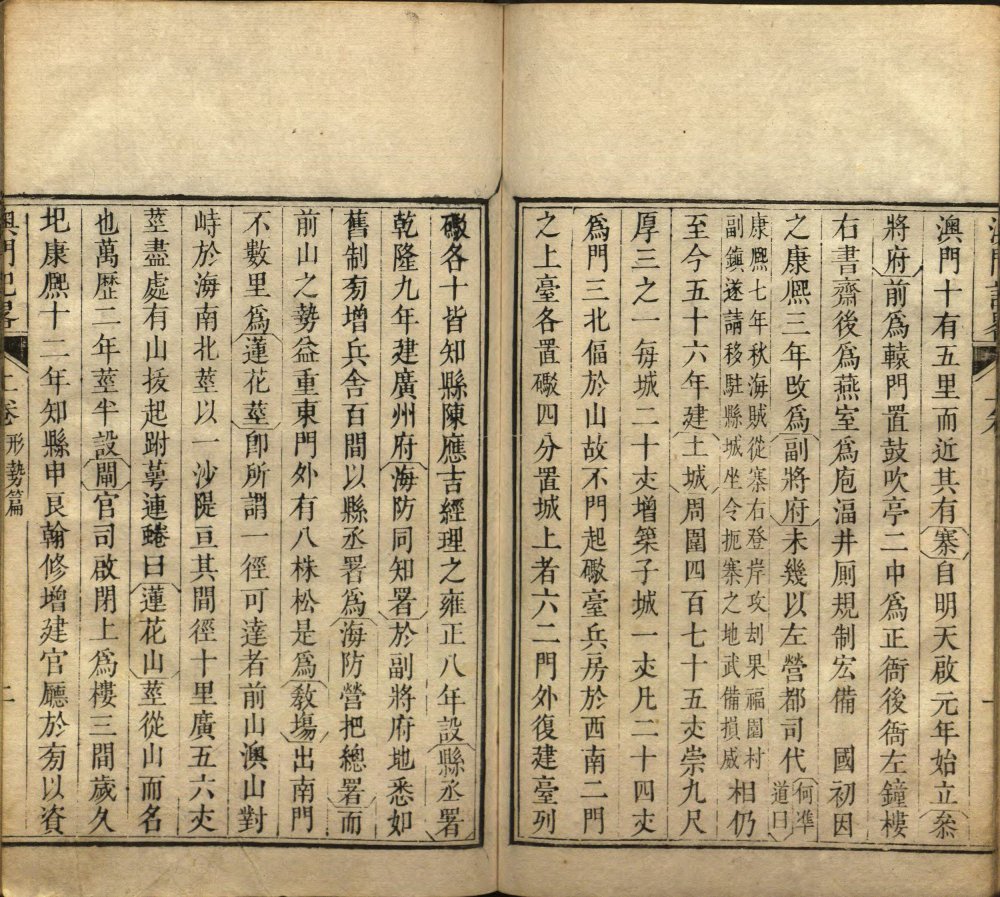 澳門十有五里而近其有寨自明天啟元年始立叅
將府前爲轅門置鼓吹亭二中爲正衙後衙左鐘樓
右書齋後爲燕室爲庖湢井厠規制宏備　國初因
之康熈三年改爲副將府未幾以左營都司代何準
道曰
康熈七年秋海賊從寨右登岸攻刦果福園村
副鎮遂請移駐縣城坐令扼寨之地武備損威相仍
至今五十六年建土城周圍四百七十五𠀋崇九尺
厚三之一每城二十𠀋增築子城一𠀋凡二十四𠀋
爲門三北偪於山故不門起礮臺兵房於西南二門
之上臺各置礮四分置城上者六二門外復建臺列
礮各十皆知縣陳應吉經理之雍正八年設縣丞署
乾隆九年建廣州府海防同知署於副將府地悉如
舊制旁增兵舍百間以縣丞署爲海防營把總署而
前山之勢益重東門外有八株松是爲敎場出南門
不數里爲蓮花莖卽所謂一徑可達者前山澳山對
峙於海南北莖以一沙隄亘其間徑十里廣五六𠀋
莖盡處有山拔起跗萼連蜷曰蓮花山莖從山而名
也萬歴二年莖半設閘官司啟閉上爲樓三間歲久
圮康熈十二年知縣申良翰修增建官廳於旁以資
澳門記畧
上卷　形勢篇